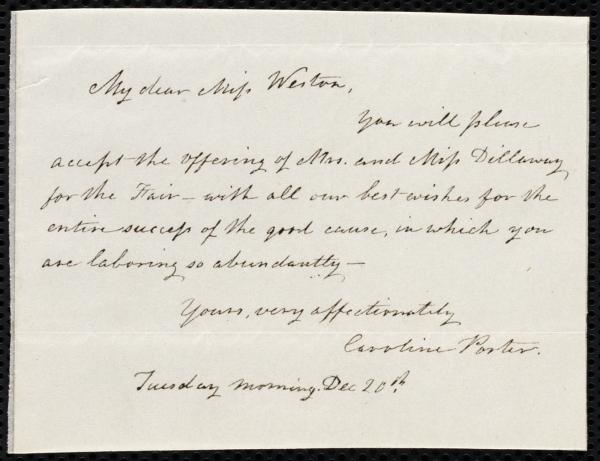 My dear Miss Weston,
You will please
accept the offering of Mrs. and Miss Dillaway
for the Fair – with all our best wishes for the
entire success of the good cause, in which you
are laboring so abundantly –
Yours, very affectionately
Caroline Porter.
Tuesday morning. Dec 20th.